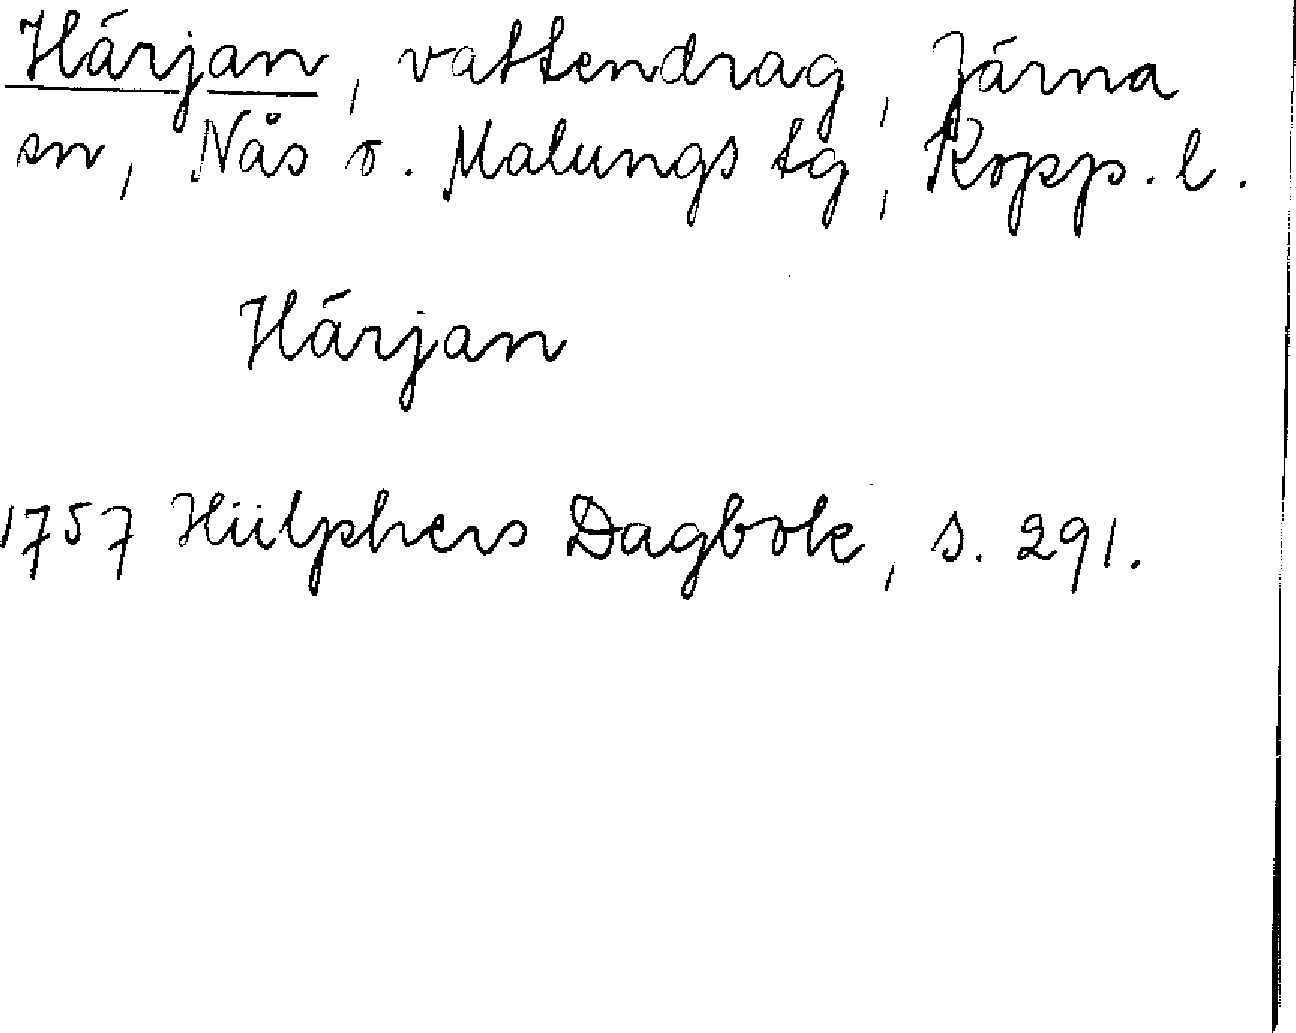 Härjan, vattendrag, Järna
sn, Nås o. Malungs tg, Kopp. l.
Härjan
1757 Hülphers Dagbok, s. 291.